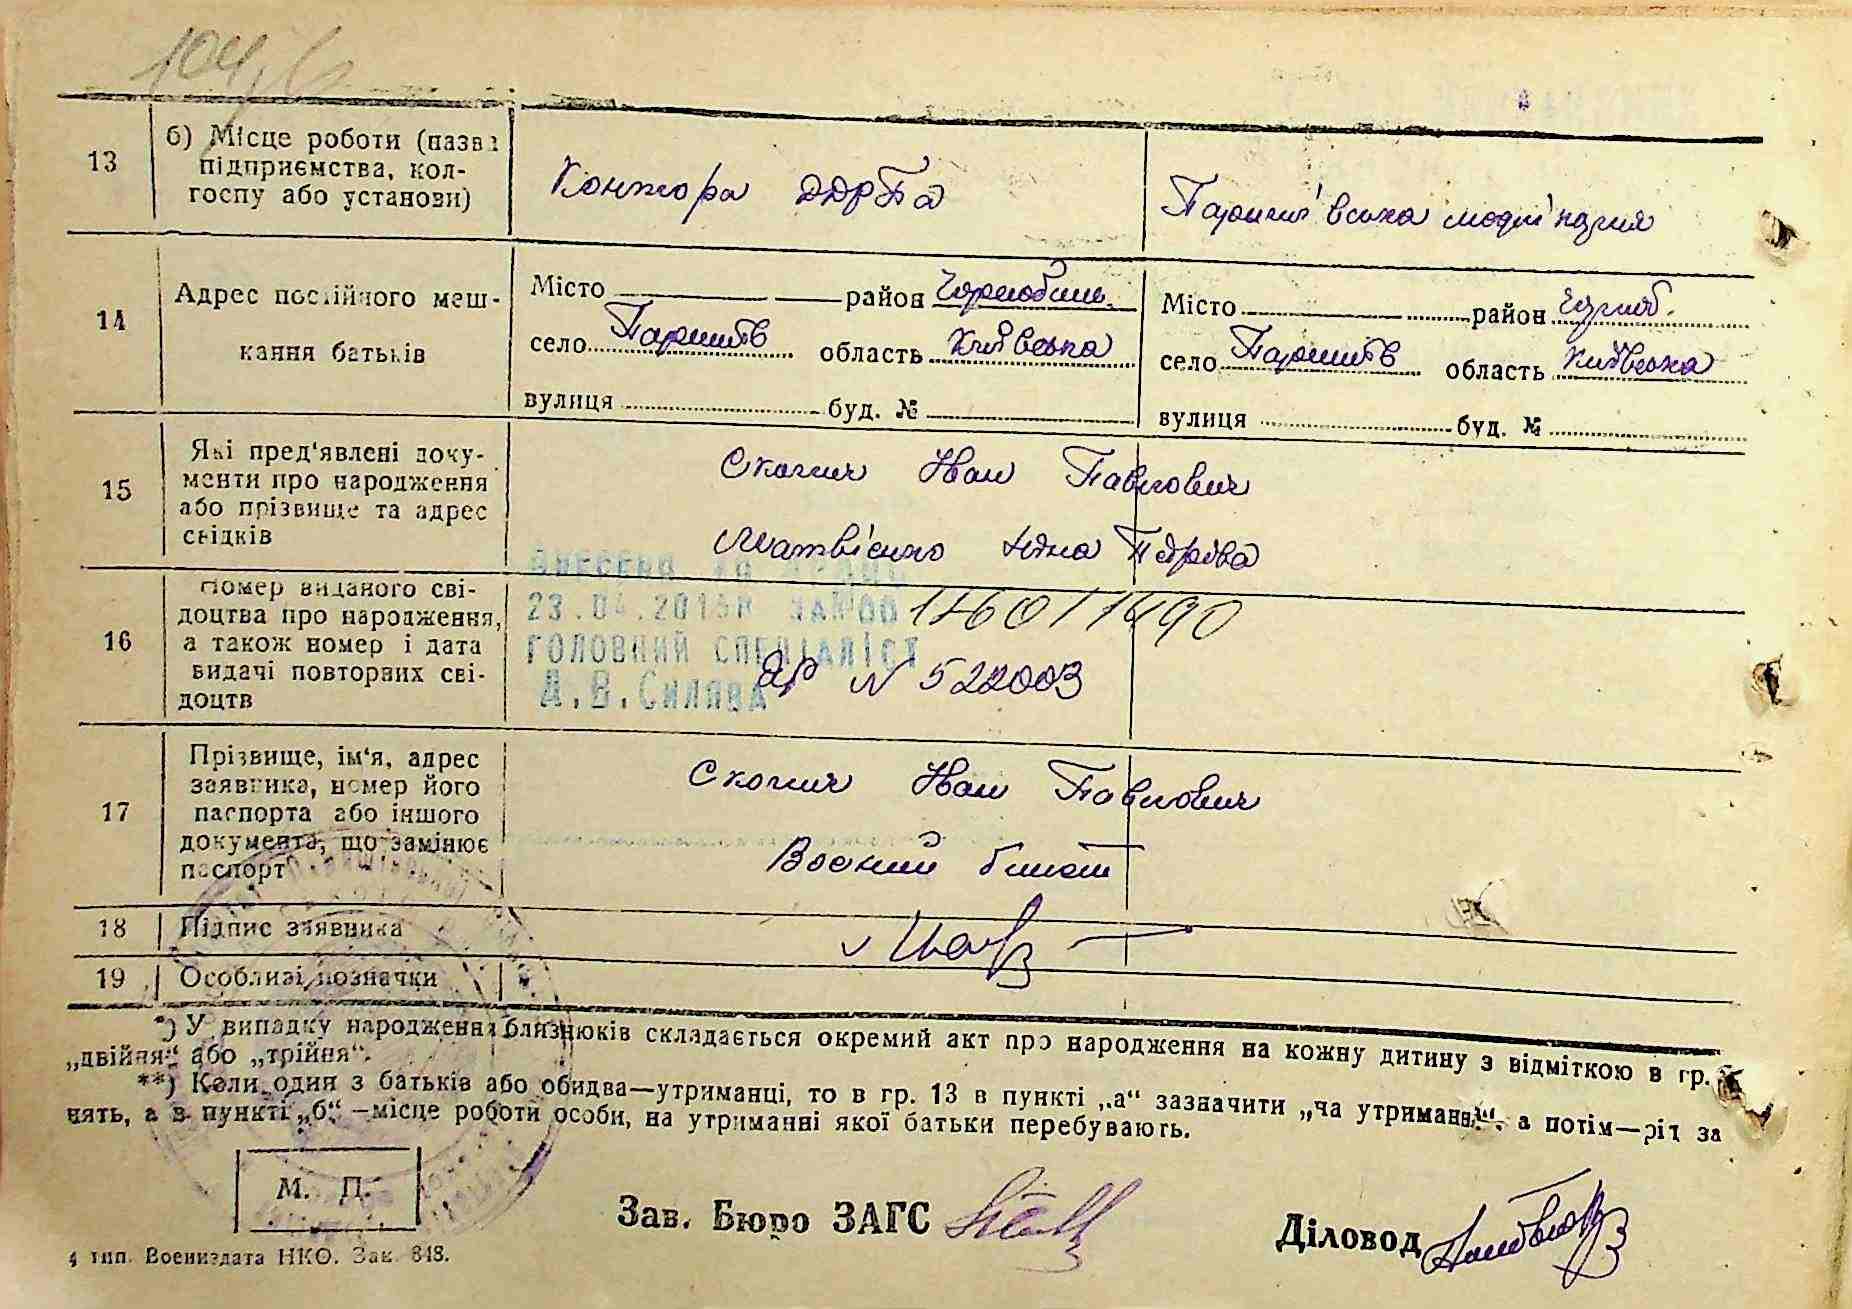 104
13
б) Місце роботи (назва
підприємства, кол-
госпу або установи)
Контора
Паришівська
14
Адрес постійного меш-
кання батьків
Місто район Чорнобиль.
село Паришів область Київська
вулиця буд. №
Місто район Чорноб.
село Паришів область Київська
вулиця буд. №
15
Які пред'явлені доку-
менти про народження
або прізвище та адрес
свідків
Іван Павлович
Матвієнко
16
Номер виданого сві-
доцтва про народження,
а також номер і дата
видачі повторних сві-
доцтв
23.04.2016
ГОЛОВНИЙ СПЕЦІАЛІСТ
А.В.Силява
1760/1490
N 522003
17
Прізвище, ім'я, адрес
заявника, номер його
паспорта або іншого
документа, що замінює
паспорт
Іван Павлович
Воєний билет
18
Підпис заявника
19
Особливі позначки
*) У випадку народження близнюків складається окремий акт про народження на кожну дитину з відміткою в гр.
„двійня“ або „трійня“.
**) Коли один з батьків або обидва—утриманці, то в гр. 13 в пункті „а“ зазначити „на утриманні“, а потім—ріт за
нять, а в пункті „б“ —місце роботи особи, на утриманні якої батьки перебувають.
М. П.
Зав. Бюро ЗАГС
Діловод
4 тип. Воениздата НКО. Зак. 848.